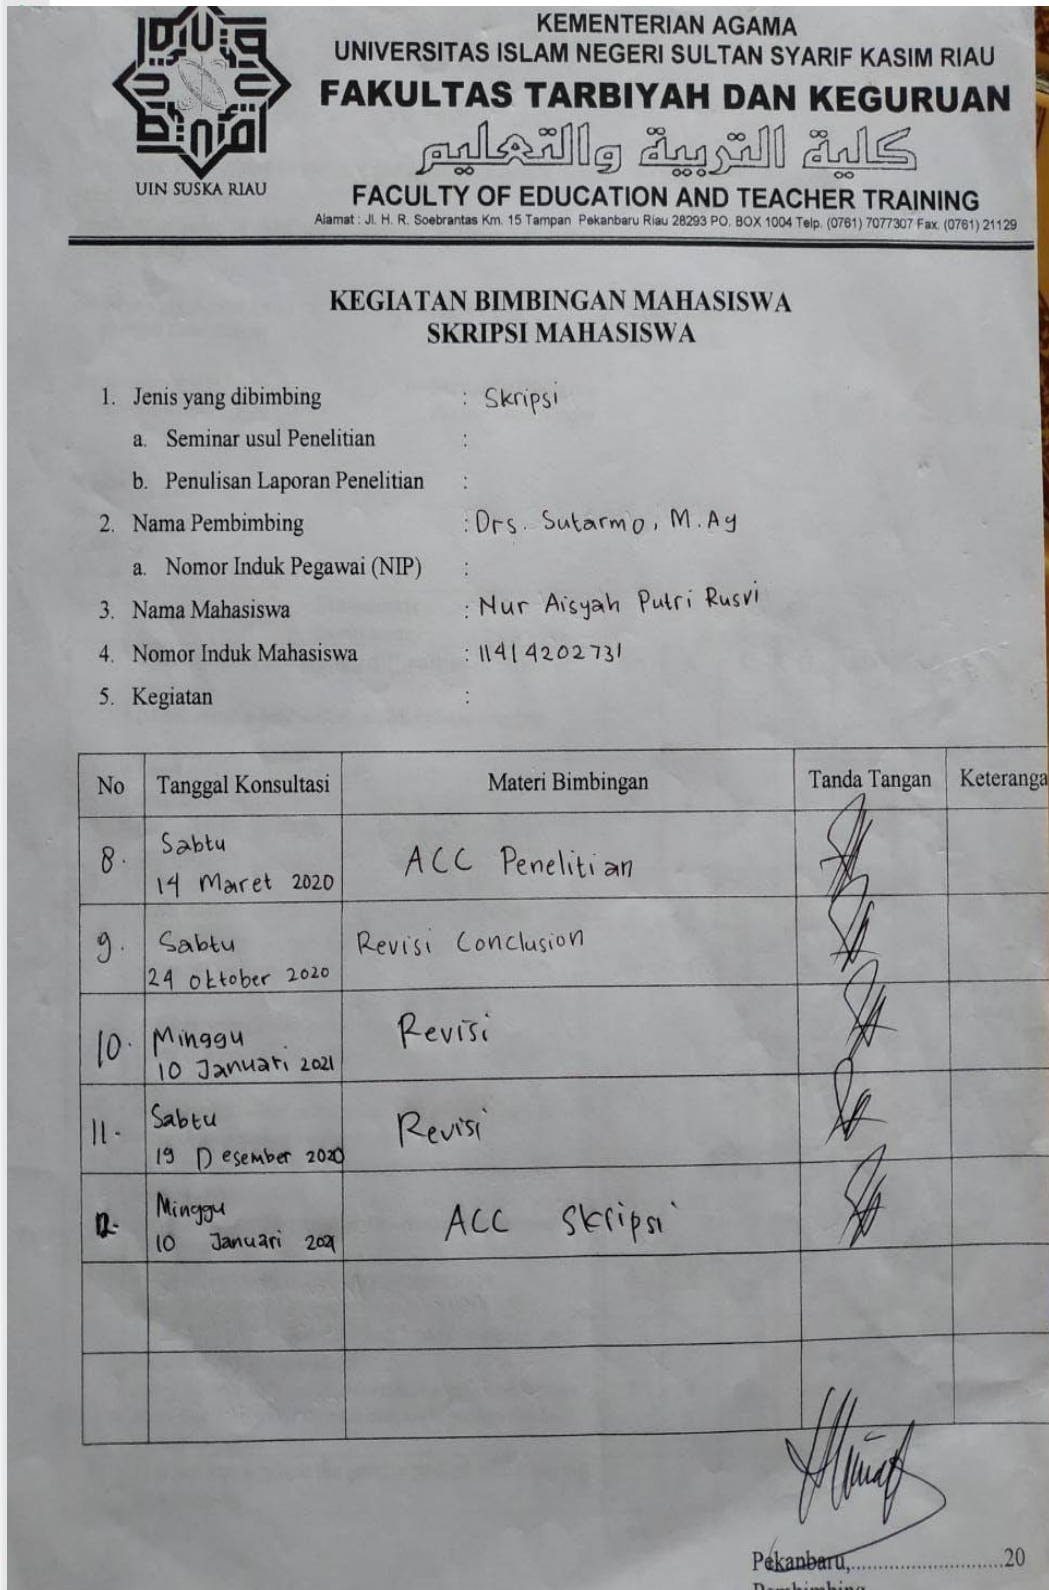 KEMENTERIAN AGAMA
UNIVERSITAS ISLAM NEGERI SULTAN SYARIF KASIM RIAU
FAKULTAS TARBIYAH DAN KEGURUAN
كلية التربية والتعليم
FACULTY OF EDUCATION AND TEACHER TRAINING
Alamat : Jl. H. R. Soebrantas Km. 15 Tampan Pekanbaru Riau 28293 PO. BOX 1004 Telp. (0761) 7077307 Fax. (0761) 21129
UIN SUSKA RIAU
KEGIATAN BIMBINGAN MAHASISWA
SKRIPSI MAHASISWA
1. Jenis yang dibimbing : Skripsi
a. Seminar usul Penelitian :
b. Penulisan Laporan Penelitian :
2. Nama Pembimbing : Drs. Sutarmo, M.Ag
a. Nomor Induk Pegawai (NIP) :
3. Nama Mahasiswa : Nur Aisyah Putri Rusvi
4. Nomor Induk Mahasiswa : 11414202731
5. Kegiatan :
No Tanggal Konsultasi Materi Bimbingan Tanda Tangan Keteranga
8. Sabtu
14 Maret 2020 ACC Penelitian
9. Sabtu Revisi Conclusion
24 Oktober 2020
10. Minggu Revisi
10 Januari 2021
11. Sabtu Revisi
19 Desember 2020
12. Minggu ACC Skripsi
10 Januari 2021
Pekanbaru,............................20
Pembimbing